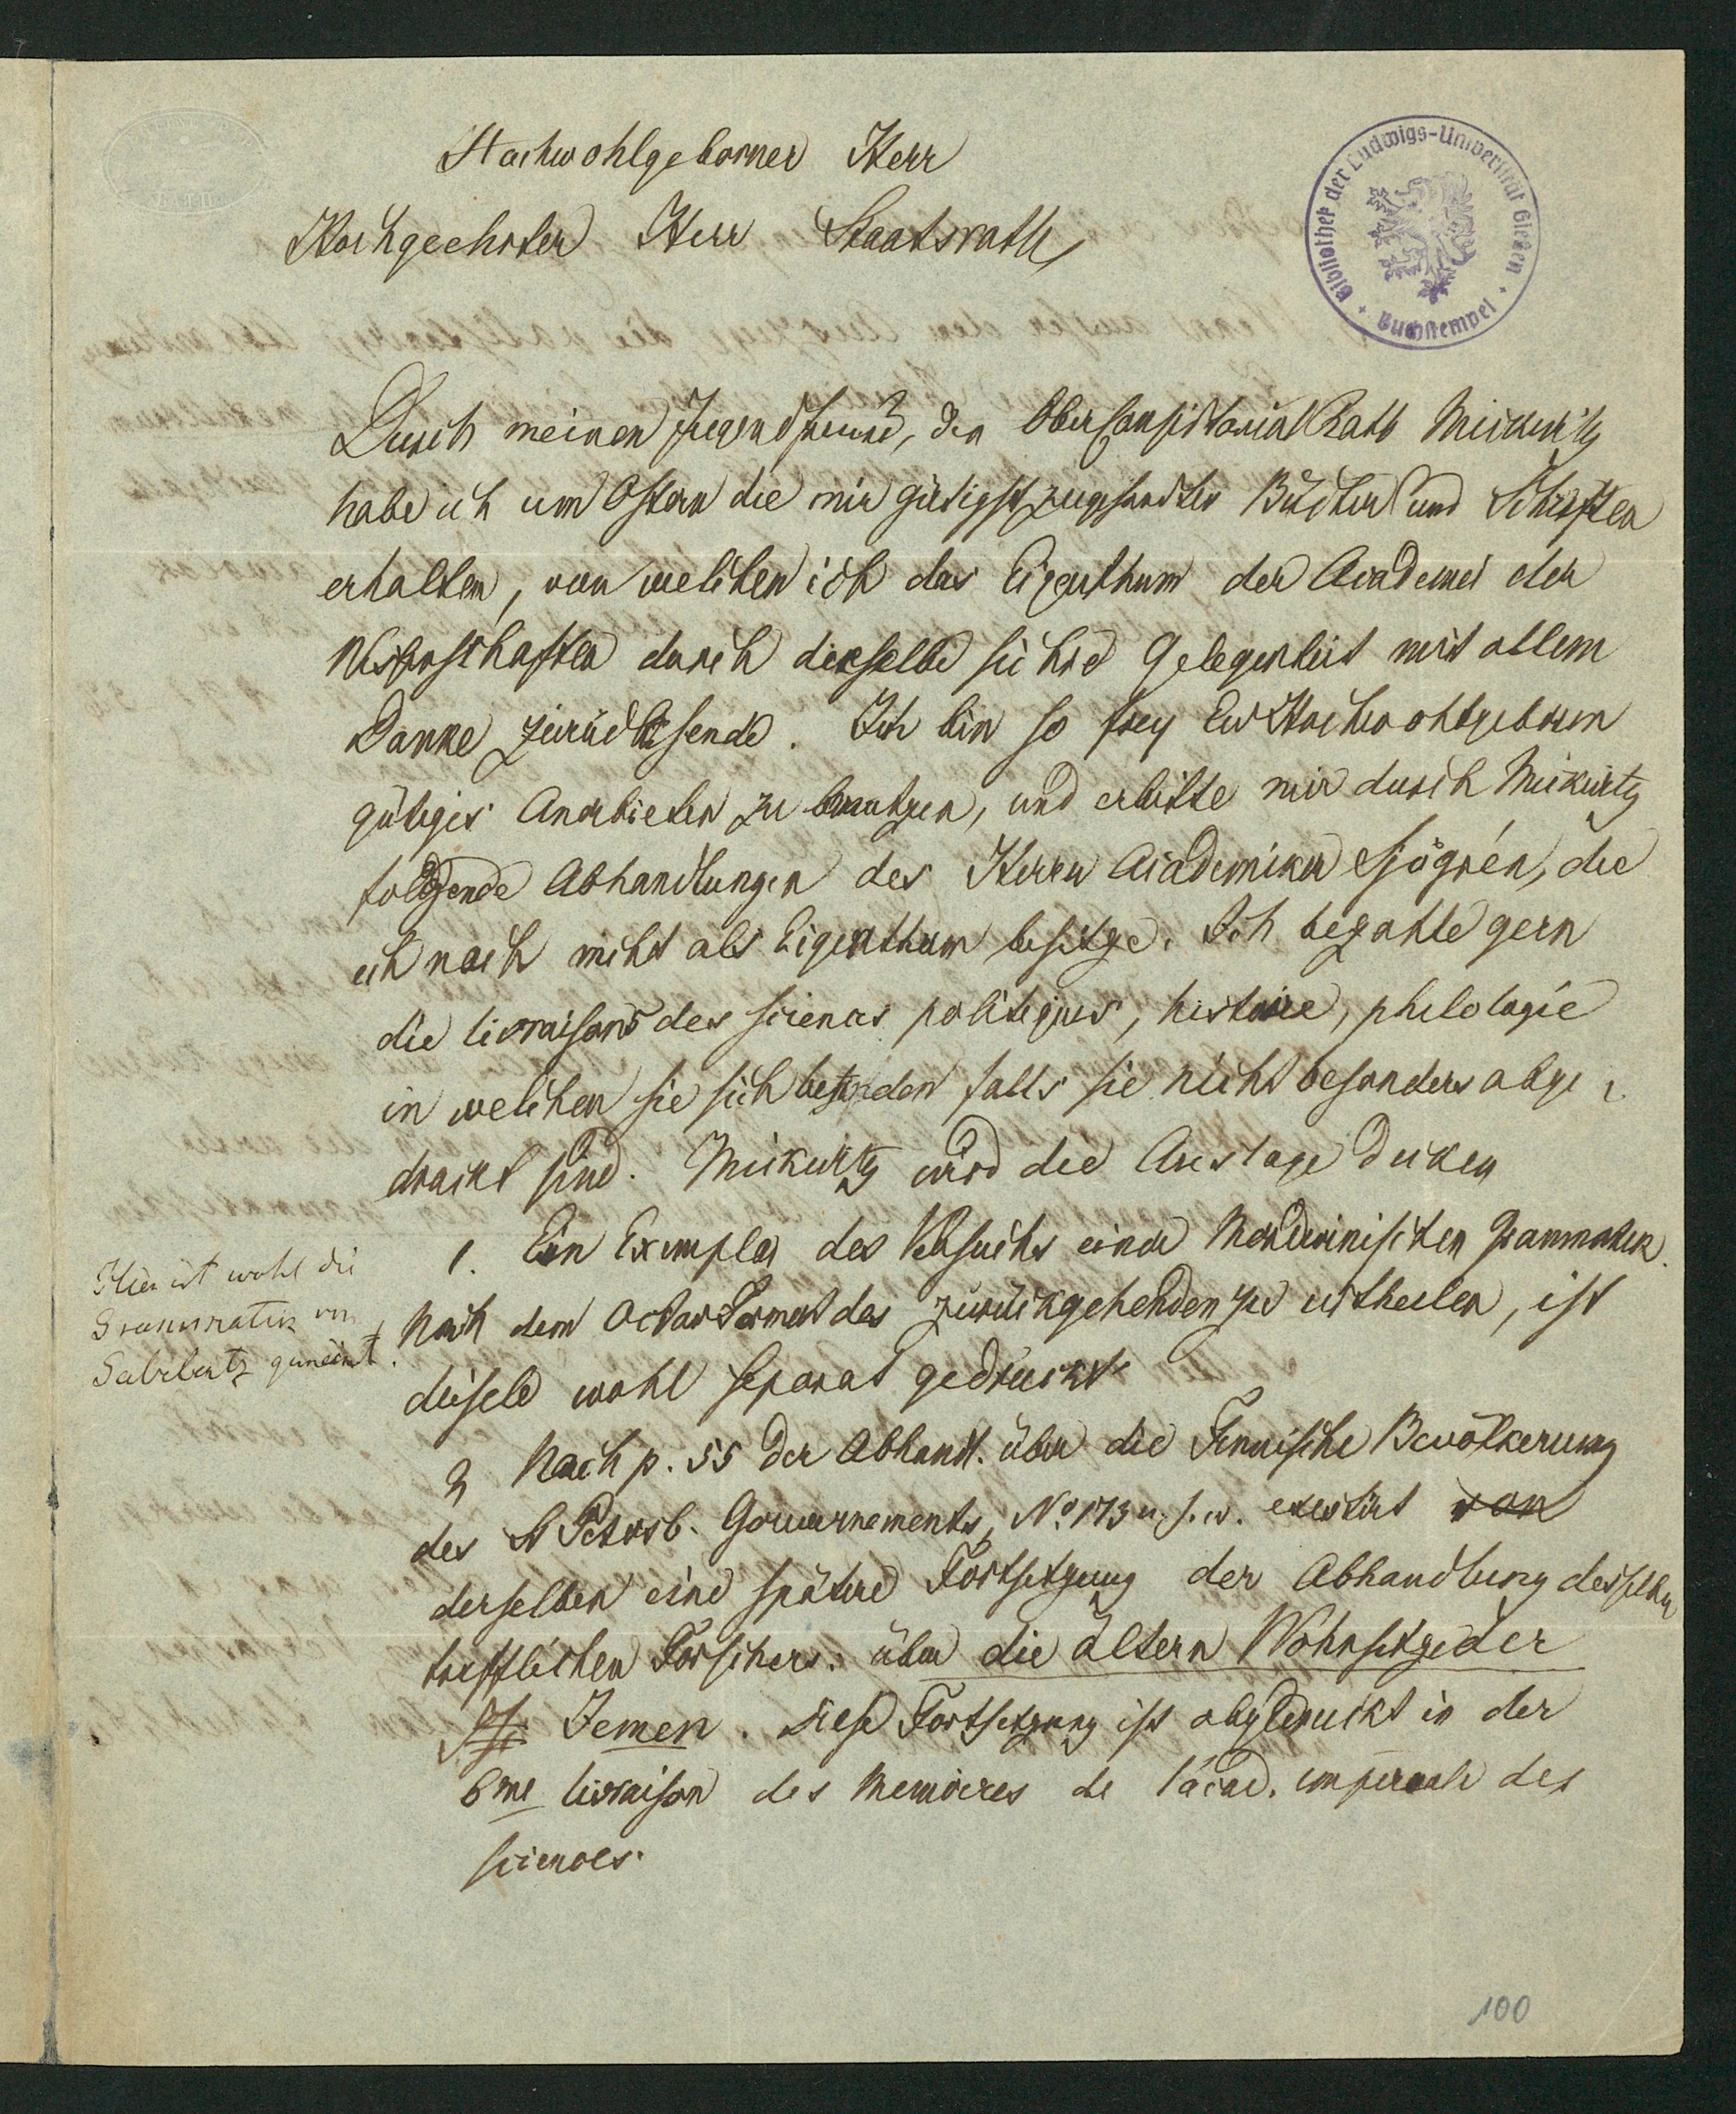 Hochwohlgeborner Herr
Hochgeehrter Herr Staatsrath,
Bibliothek der Ludwigs-Universität Gießen
Buchstempel
Durch meinen Jugendfreund, den OberConsistorial Rath Mickwitz
habe ich um Ostern die mir gütigst zugesandten Bücher und Schriften
erhalten, von welchen ich das Eigenthum der Academie der
Wissenschaften durch dieselbe sichre Gelegenheit mit allem
Danke zurücksende. Ich bin so frey Ew Hochwohlgeboren
gütiges Anerbieten zu benutzen, und erbitte mir durch Mickwitz
folgende Abhandlungen des Herrn Academiker Sjögrén, die
ich noch nicht als Eigenthum besitze. Ich bezahle gern
die livraisons des sciences politiques, histoire, philologie
in welchen sie sich befinden falls sie nicht besonders abge
druckt sind. Mickwitz wird die Auslage decken
1. Ein Exemplar des Versuchs einer Mordwinischen Grammatik.
Nach dem Octav Format des zurückgehenden zu urtheilen, ist
dieselbe wohl separat gedruckt
Hier ist wohl die
Grammatik von
Gabelentz gemeint.
2 Nach p. 55 der Abhandl. über die Finnische Bevölkerung
des St Petersb. Gouvernements, No. 173 u. s. w. existirt von
derselben eine spätere Fortsetzung der Abhandlung desselben
trefflichen Forschers: über die ältern Wohnsitze der
Jemen. Diese Fortsetzung ist abgedruckt in der
6me livraison des Memoires de l'acad. imperiale des
sciences.
100